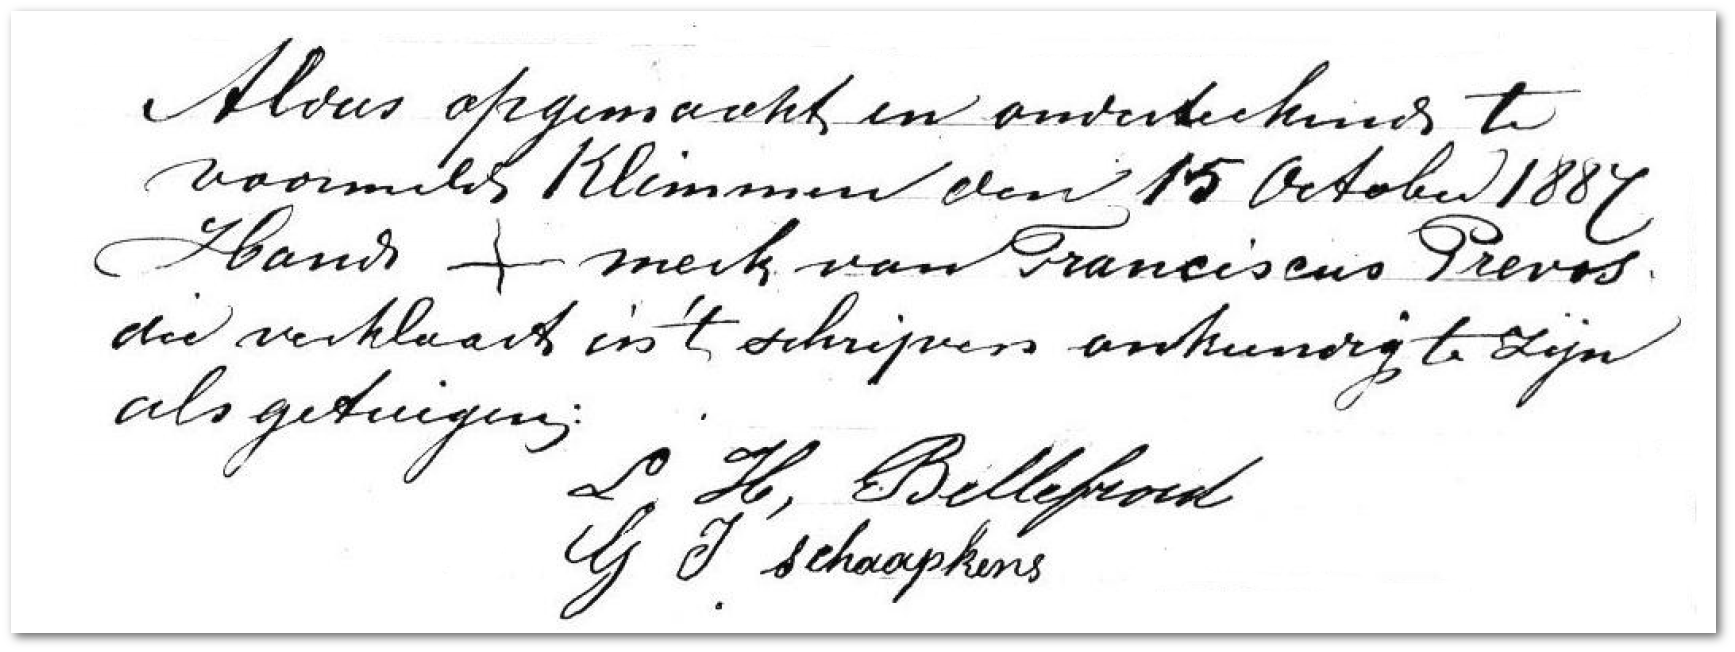 Aldus opgemaakt en onderteekend te
voormeld Klimmen den 15 October 1887
Hand + merk van Franciscus Prevos.
die verklaart in 't schrijven onkundig te zijn
als getuigen:
L. H, Bellefroid
G J schaapkens